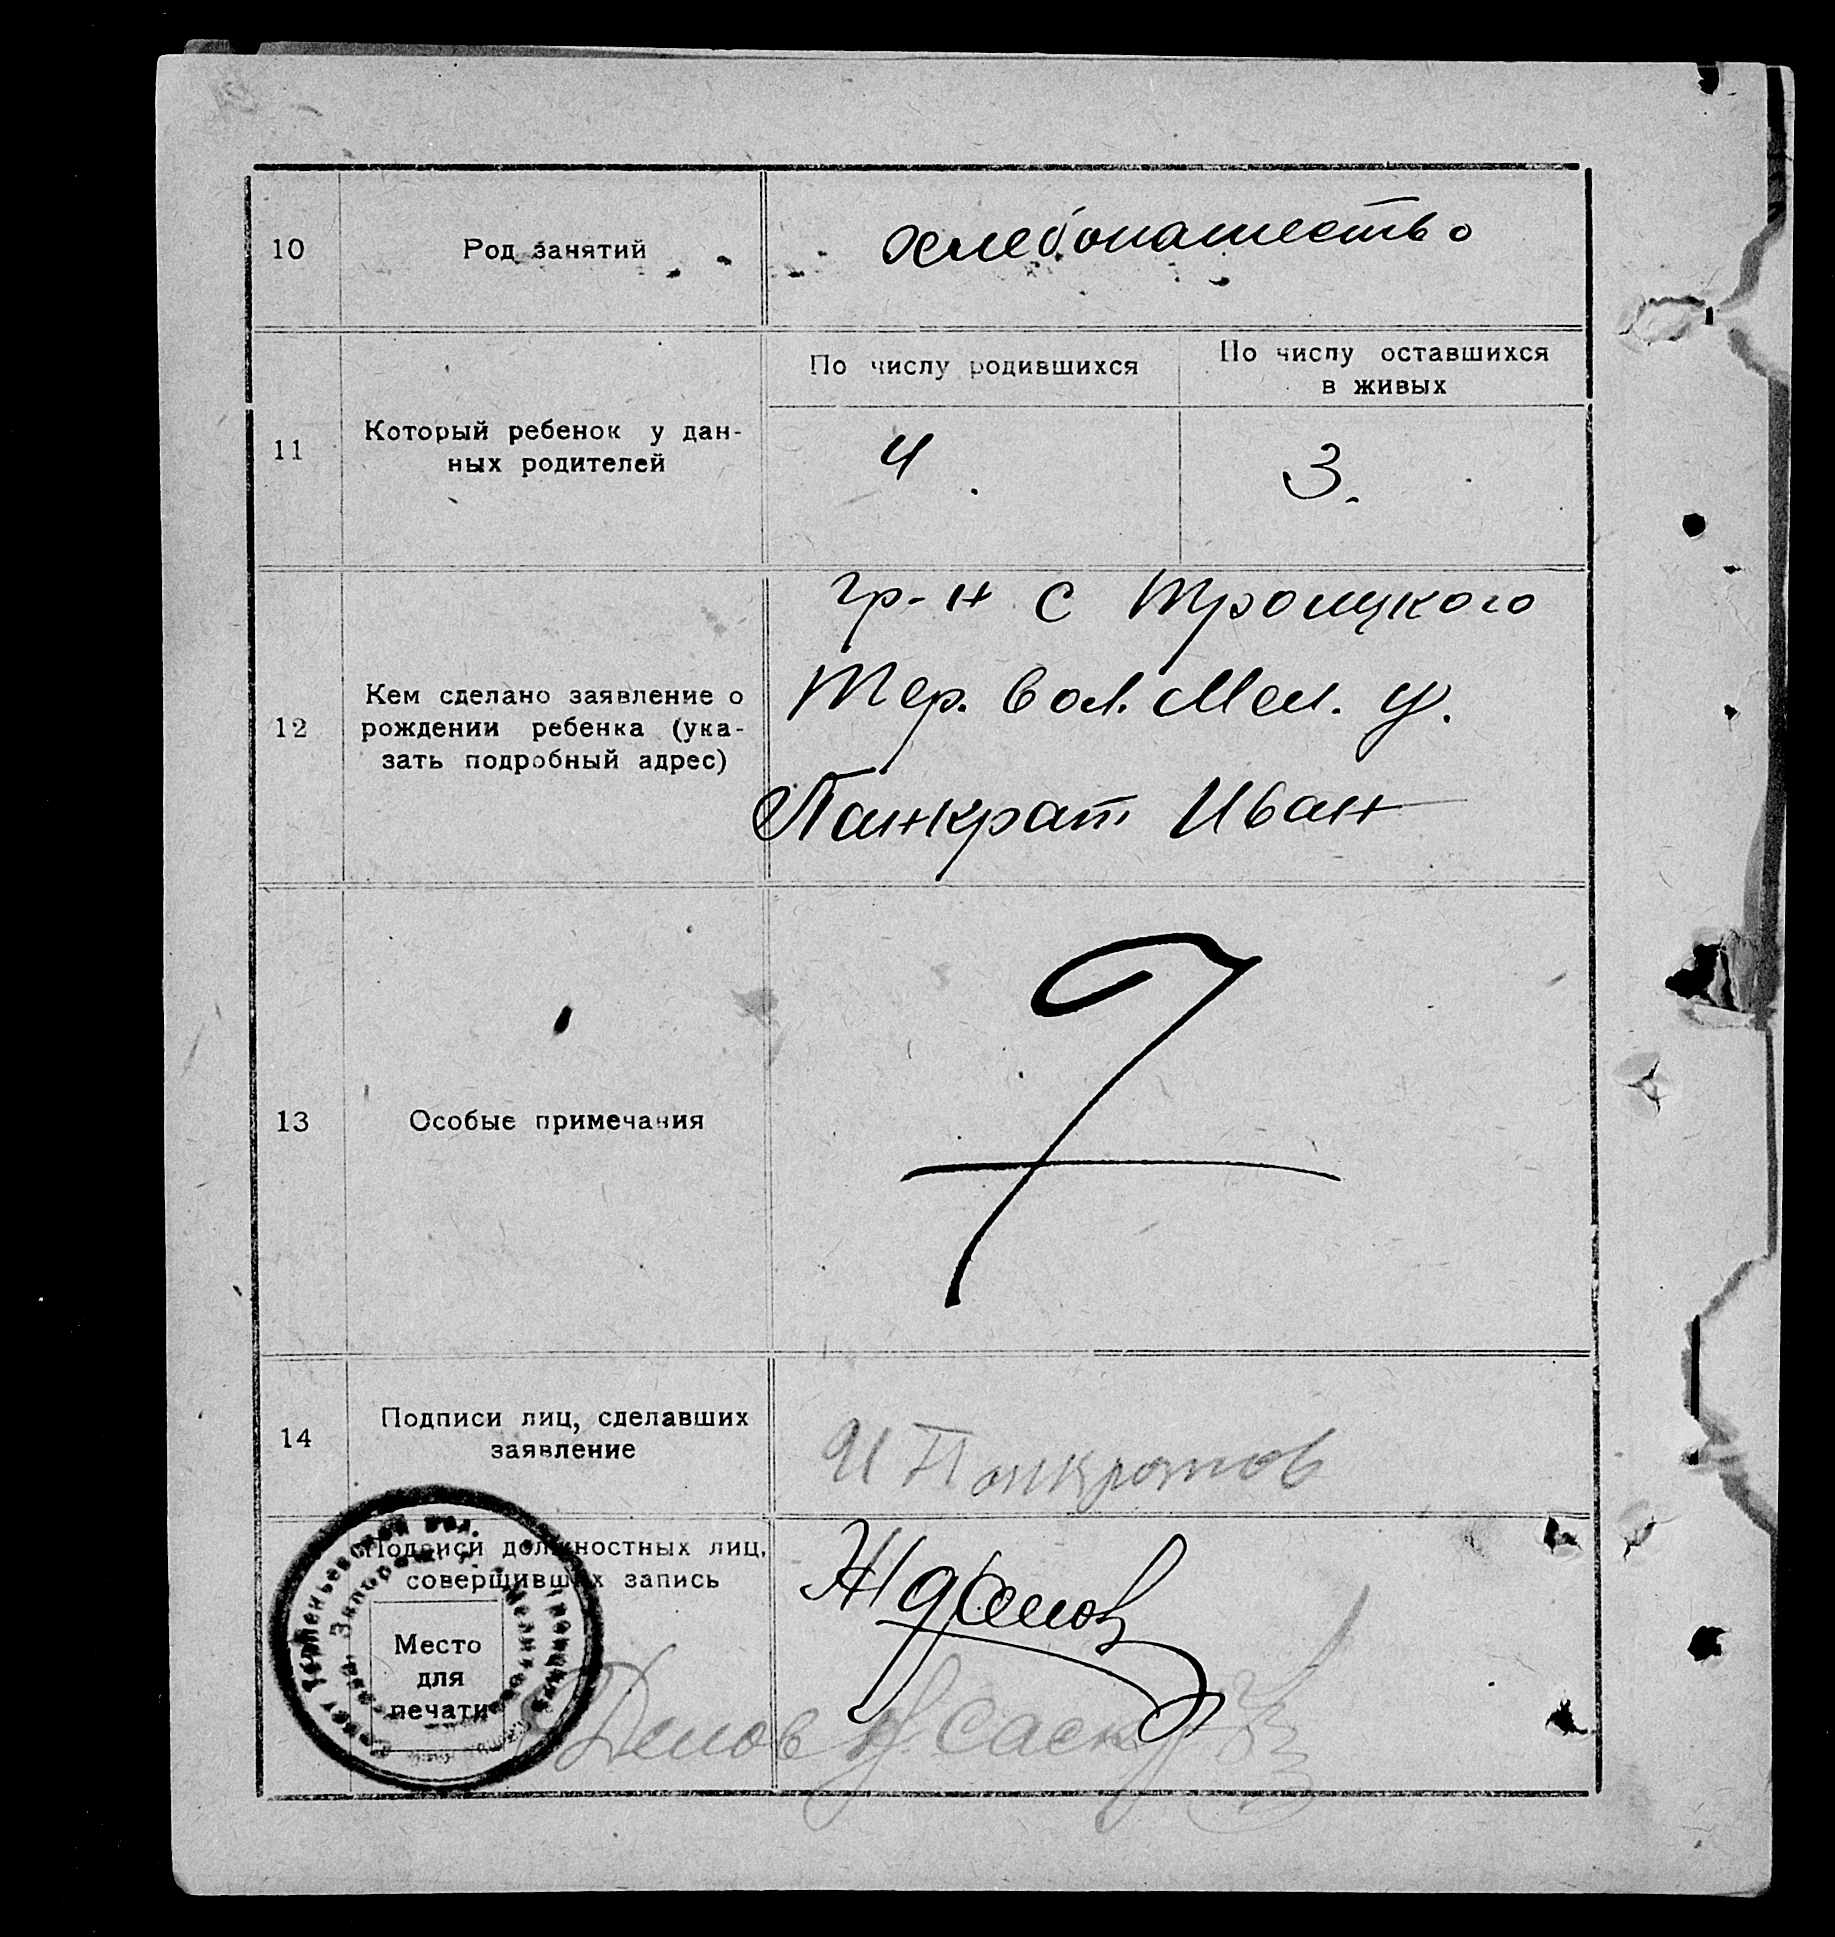 10
Род занятий
хлебопашество
11
Который ребенок у дан-
ных родителей
По числу родившихся
По числу оставшихся
в живых
4
3.
12
Кем сделано заявление о
рождении ребенка (ука-
зать подробный адрес)
гр-н с Троицкого
Тер. вол. Мел. у.
Панкрат Иван
13
Особые примечания
14
Подписи лиц, сделавших
заявление
И Панкратов
Подписи должностных лиц,
совершивших запись
Место
для
печати